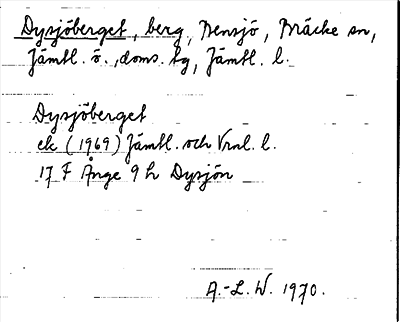 Dysjöberget, berg, Nensjö, Bräcke sn,
Jämtl. ö. doms. tg, Jämtl. l.
Dysjöberget
ek (1969) Jämtl. och Vrnl. l.
17 F Ånge 9 h Dysjön
A.-L. W. 1970.